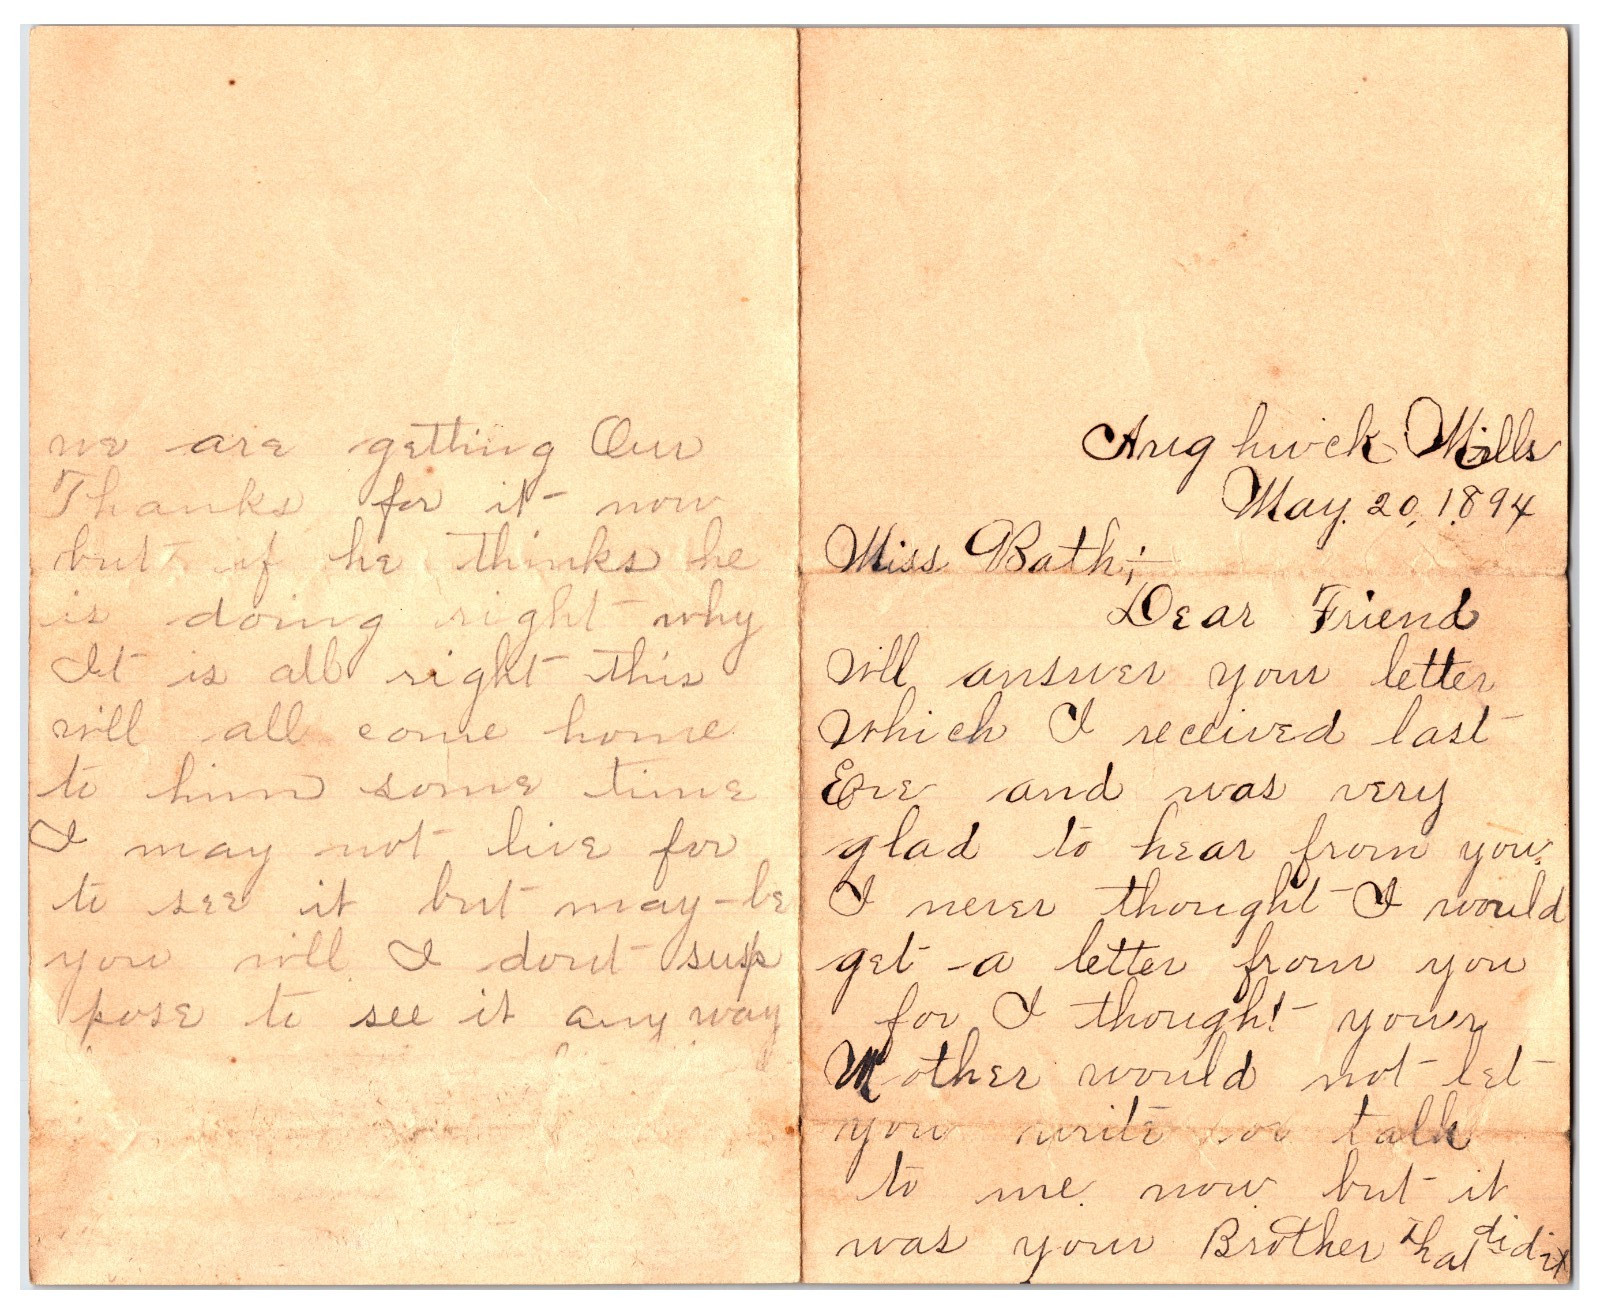 Aughwick Mills
May. 20, 1894
Miss Bath;
Dear Friend
Will answer your letter
Which I received last
Eve and was very
glad to hear from you.
I never thought I would
get a letter from you
for I thought your
Mother would not let
you write or talk
to me now but it
was your Brother that did it
we are getting Our
Thanks for it now
but if he thinks he
is doing right why
It is all right this
will all come home
to him some time
I may not live for
to see it but may-be
you will I dont sup
pose to see it any way